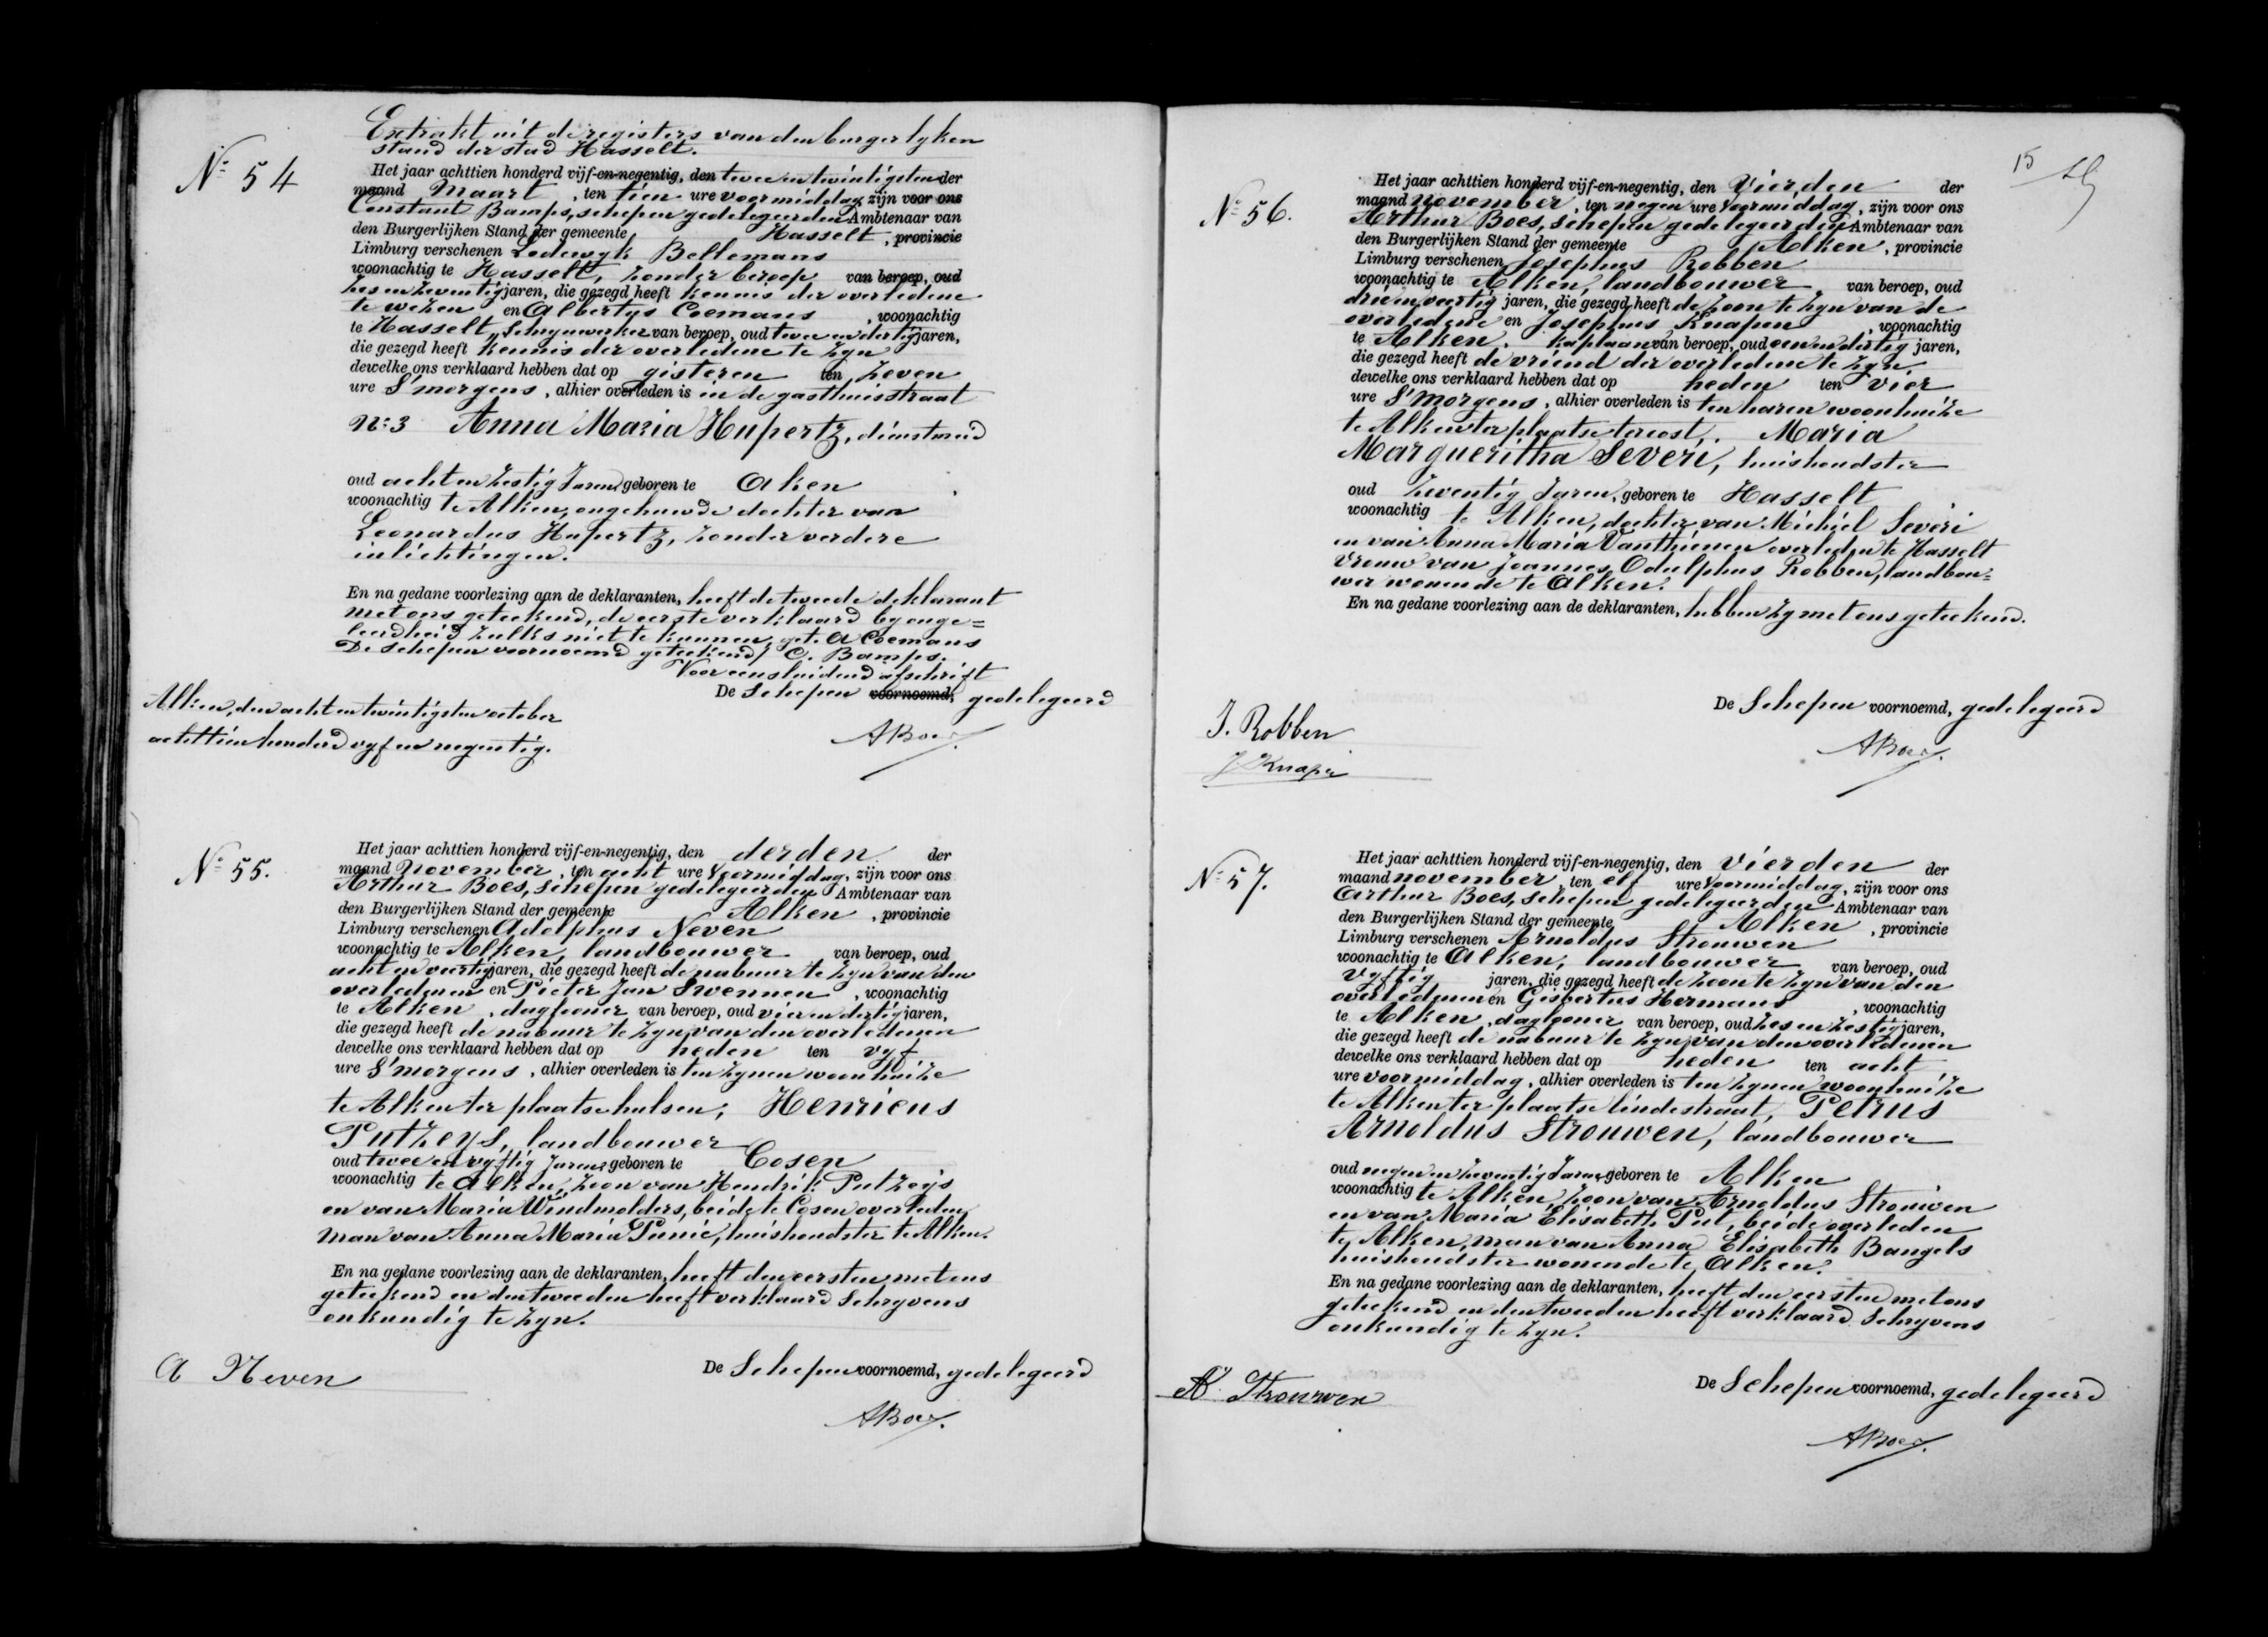 Extrakt uit de registers van den burgerlyken
stand der stad Hasselt.
N° 54
Het jaar achttien honderd vijf-en-negentig, den twee en twintigsten der
maand Maart, ten tien ure voormiddag, zijn voor ons
Constant Bamps, schepen gedelegeerden Ambtenaar van
den Burgerlijken Stand der gemeente Hasselt, provincie
Limburg verschenen Lodewyk Bellemans
woonachtig te Hasselt, zonder beroep van beroep, oud
zes en zeventig jaren, die gezegd heeft kennis der overledene
te wezen en Albertus Coemans, woonachtig
te Hasselt, Schrynwerker van beroep, oud twee en dertig jaren,
die gezegd heeft kennis der overledene te zyn
dewelke ons verklaard hebben dat op gisteren ten zeven
ure S'morgens, alhier overleden is in de gasthuisstraat
N: 3 Anna Maria Hupertz, dienstmeid
oud acht en zestig Jaren, geboren te Aken
woonachtig te Alken, ongehuwde dochter van
Leonardus Hupertz, zonder verdere
inlichtingen.
En na gedane voorlezing aan de deklaranten, heeft de tweede deklarant
met ons geteekend, de eerste verklaard by onge=
leerdheid zulks niet te kunnen, get. A Coemans
De schepen voornoemd geteekend / C. Bamps.
Voor eensluidend afschrift
De Schepen voornoemd, gedelegeerd
Alken, den acht en twintigsten october
achttien honderd vyf en negentig.
ABoes.
N° 55.
Het jaar achttien honderd vijf-en-negentig, den derden der
maand November, ten acht ure Voormiddag, zijn voor ons
Arthur Boes, schepen gedelegeerden Ambtenaar van
den Burgerlijken Stand der gemeente Alken, provincie
Limburg verschenen Adolphus Neven
woonachtig te Alken, landbouwer van beroep, oud
acht en veertig jaren, die gezegd heeft de nabuur te zyn van den
overledenen en Pieter Jan Swennen, woonachtig
te Alken, daglooner van beroep, oud vier en dertig jaren,
die gezegd heeft de nabuur te zyn van den overledenen
dewelke ons verklaard hebben dat op heden ten vyf
ure S'morgens, alhier overleden is ten zynen woonhuize
te Alken ter plaatse hulsen; Henricus
Putzeys, landbouwer
oud twee en vyftig Jaren, geboren te Cosen
woonachtig te Alken, zoon van Hendrik Putzeijs
en van Maria Windmolders, beide te Cosen overleden
man van Anna Maria Punie, huishoudster te Alken.
En na gedane voorlezing aan de deklaranten, heeft den eersten met ons
geteekend en den tweeden heeft verklaard Schryvens
onkundig te zyn.
De Schepen voornoemd, gedelegeerd
A Neven
ABoes.
15
N° 56.
Het jaar achttien honderd vijf-en-negentig, den Vierden der
maand November, ten negen ure Voormiddag, zijn voor ons
Arthur Boes, schepen gedelegeerden Ambtenaar van
den Burgerlijken Stand der gemeente Alken, provincie
Limburg verschenen Josephus Robben
woonachtig te Alken, landbouwer van beroep, oud
drie en veertig jaren, die gezegd heeft de zoon te zyn van de
overledene en Josephus Knapen, woonachtig
te Alken. Kaplaan van beroep, oud een en dertig jaren,
die gezegd heeft de vriend der overledene te zyn
dewelke ons verklaard hebben dat op heden ten vier
ure S'morgens, alhier overleden is ten haren woonhuize
te Alken ter plaatse tercost,. Maria
Margueritha Severi, huishoudster
oud zeventig Jaren, geboren te Hasselt
woonachtig te Alken, dochter van Michiel Severi
en van Anna Maria Vanthienen overleden te Hasselt
Vrouw van Joannes Odulphus Robben, landbou=
wer wonende te Alken.
En na gedane voorlezing aan de deklaranten, hebben zy met ons geteekend.
De Schepen voornoemd, gedelegeerd
J. Robben
J. Knapen
ABoes.
N° 57.
Het jaar achttien honderd vijf-en-negentig, den Vierden der
maand november, ten elf ure Voormiddag, zijn voor ons
Arthur Boes, schepen gedelegeerden Ambtenaar van
den Burgerlijken Stand der gemeente Alken, provincie
Limburg verschenen Arnoldus Strouwen
woonachtig te Alken, landbouwer van beroep, oud
vyftig jaren, die gezegd heeft de zoon te zyn van den
overledenen en Gisbertus Hermans, woonachtig
te Alken, daglooner van beroep, oud zes en zestig jaren,
die gezegd heeft de nabuur te zyn van den overledenen
dewelke ons verklaard hebben dat op heden ten acht
ure voormiddag, alhier overleden is ten zynen woonhuize
te Alken ter plaatse lindestraat, Petrus
Arnoldus Strouwen, landbouwer
oud negen en zeventig Jaren, geboren te Alken
woonachtig te Alken, zoon van Arnoldus Strouwen
en van Maria Elisabeth Put, beide overleden
te Alken, man van Anna Elisabeth Bangels
huishoudster wonende te Alken.
En na gedane voorlezing aan de deklaranten, heeft den eersten met ons
geteekend en den tweeden heeft verklaard Schryvens
onkundig te zyn.
De Schepen voornoemd, gedelegeerd
A. Strouwen
ABoes.